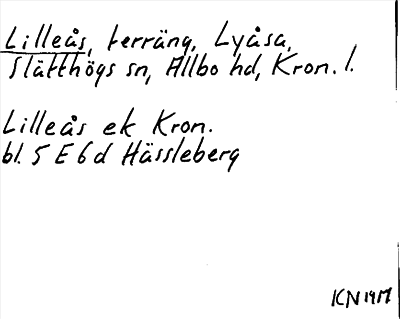 Lilleås, terräng, Lyåsa,
Slätthögs sn, Allbo hd, Kron. l.
Lilleås ek Kron.
bl. 5 E 6 d Hässleberg